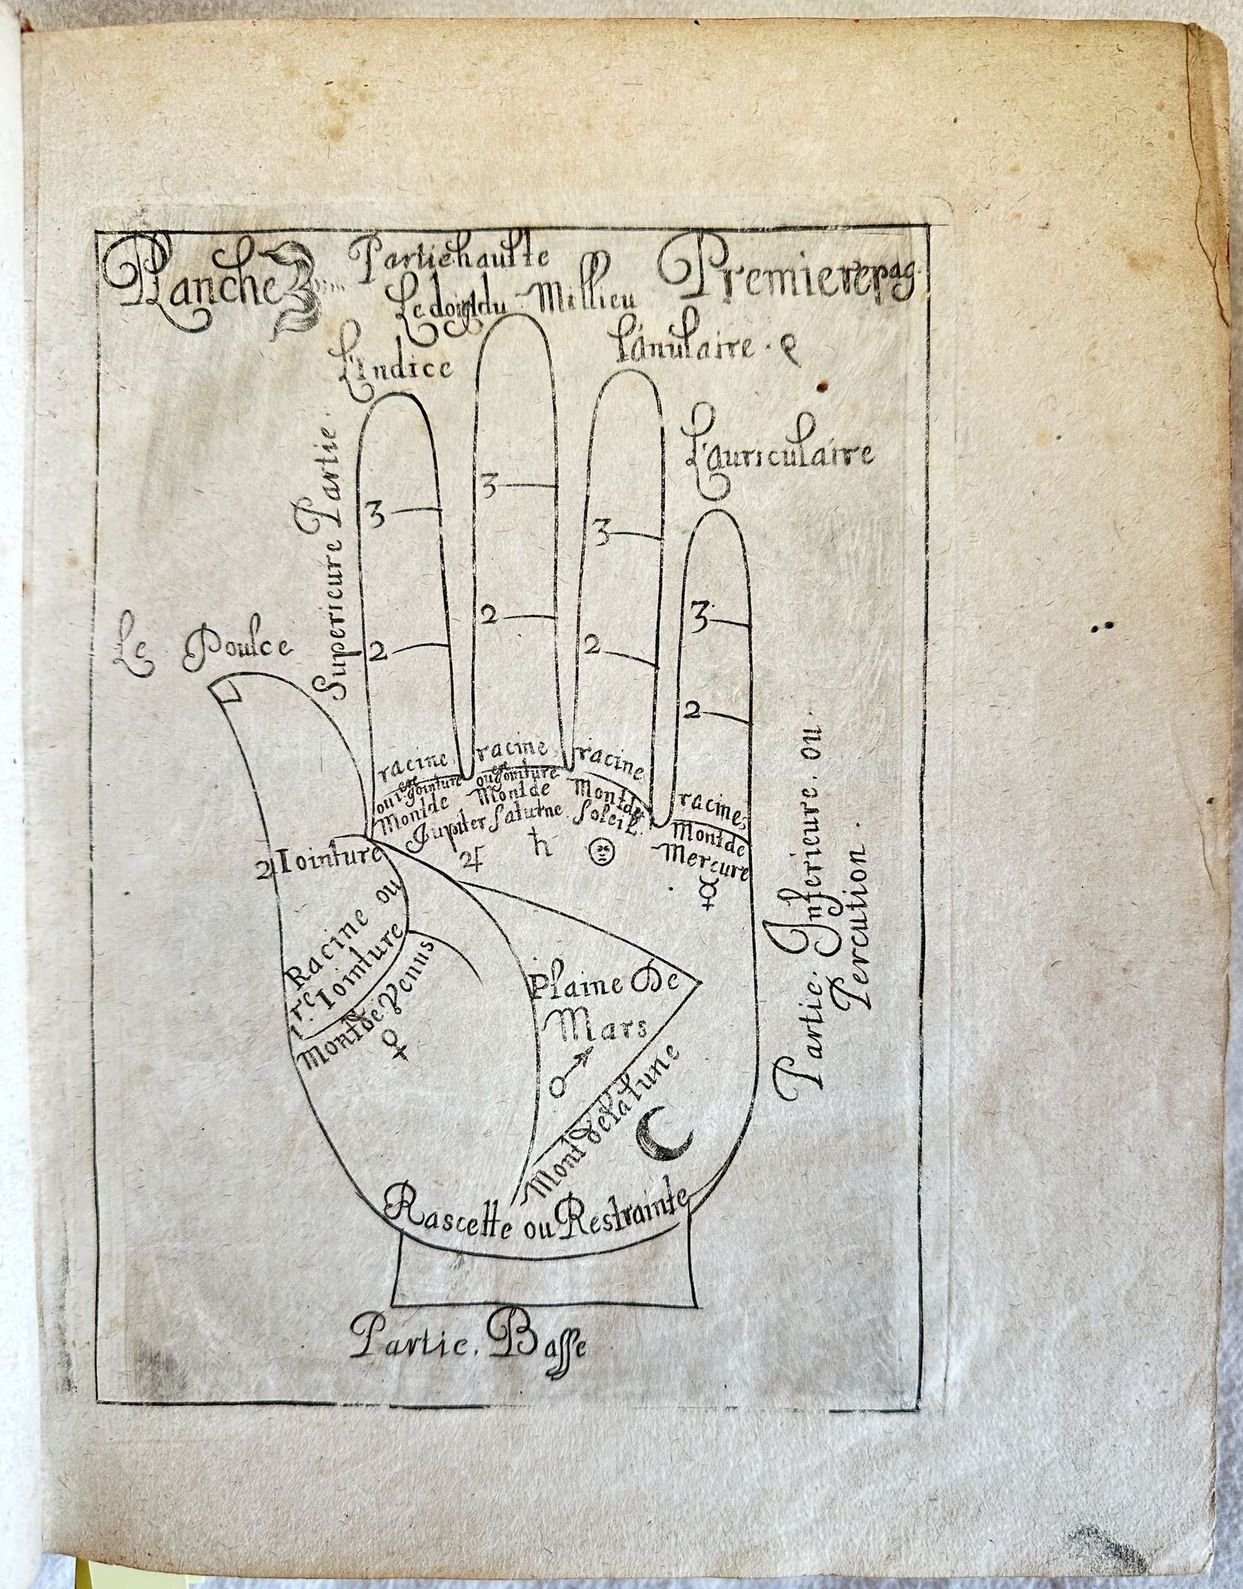 Planche
Partie haulte
Premiere pag.
Le doigt du Millieu
L'anulaire.
L'Indice
L'auriculaire
Superieure Partie.
3
3
3
3
2
2
2
2
Le Poulce
racine
racine
racine
racine
ou 1re Iointure
ou 1re Iointure
Mont de
Jupiter
♃
Mont de
Saturne
♄
Mont du
Soleil.
Mont de
Mercure
☿
2 Iointure
Racine ou
1re Iointure
Mont de Venus
♀
Plaine De
Mars
♂
Mont de la lune
☾
Partie. Inferieure. ou
Percution.
Rascette ou Restrainte
Partie. Basse